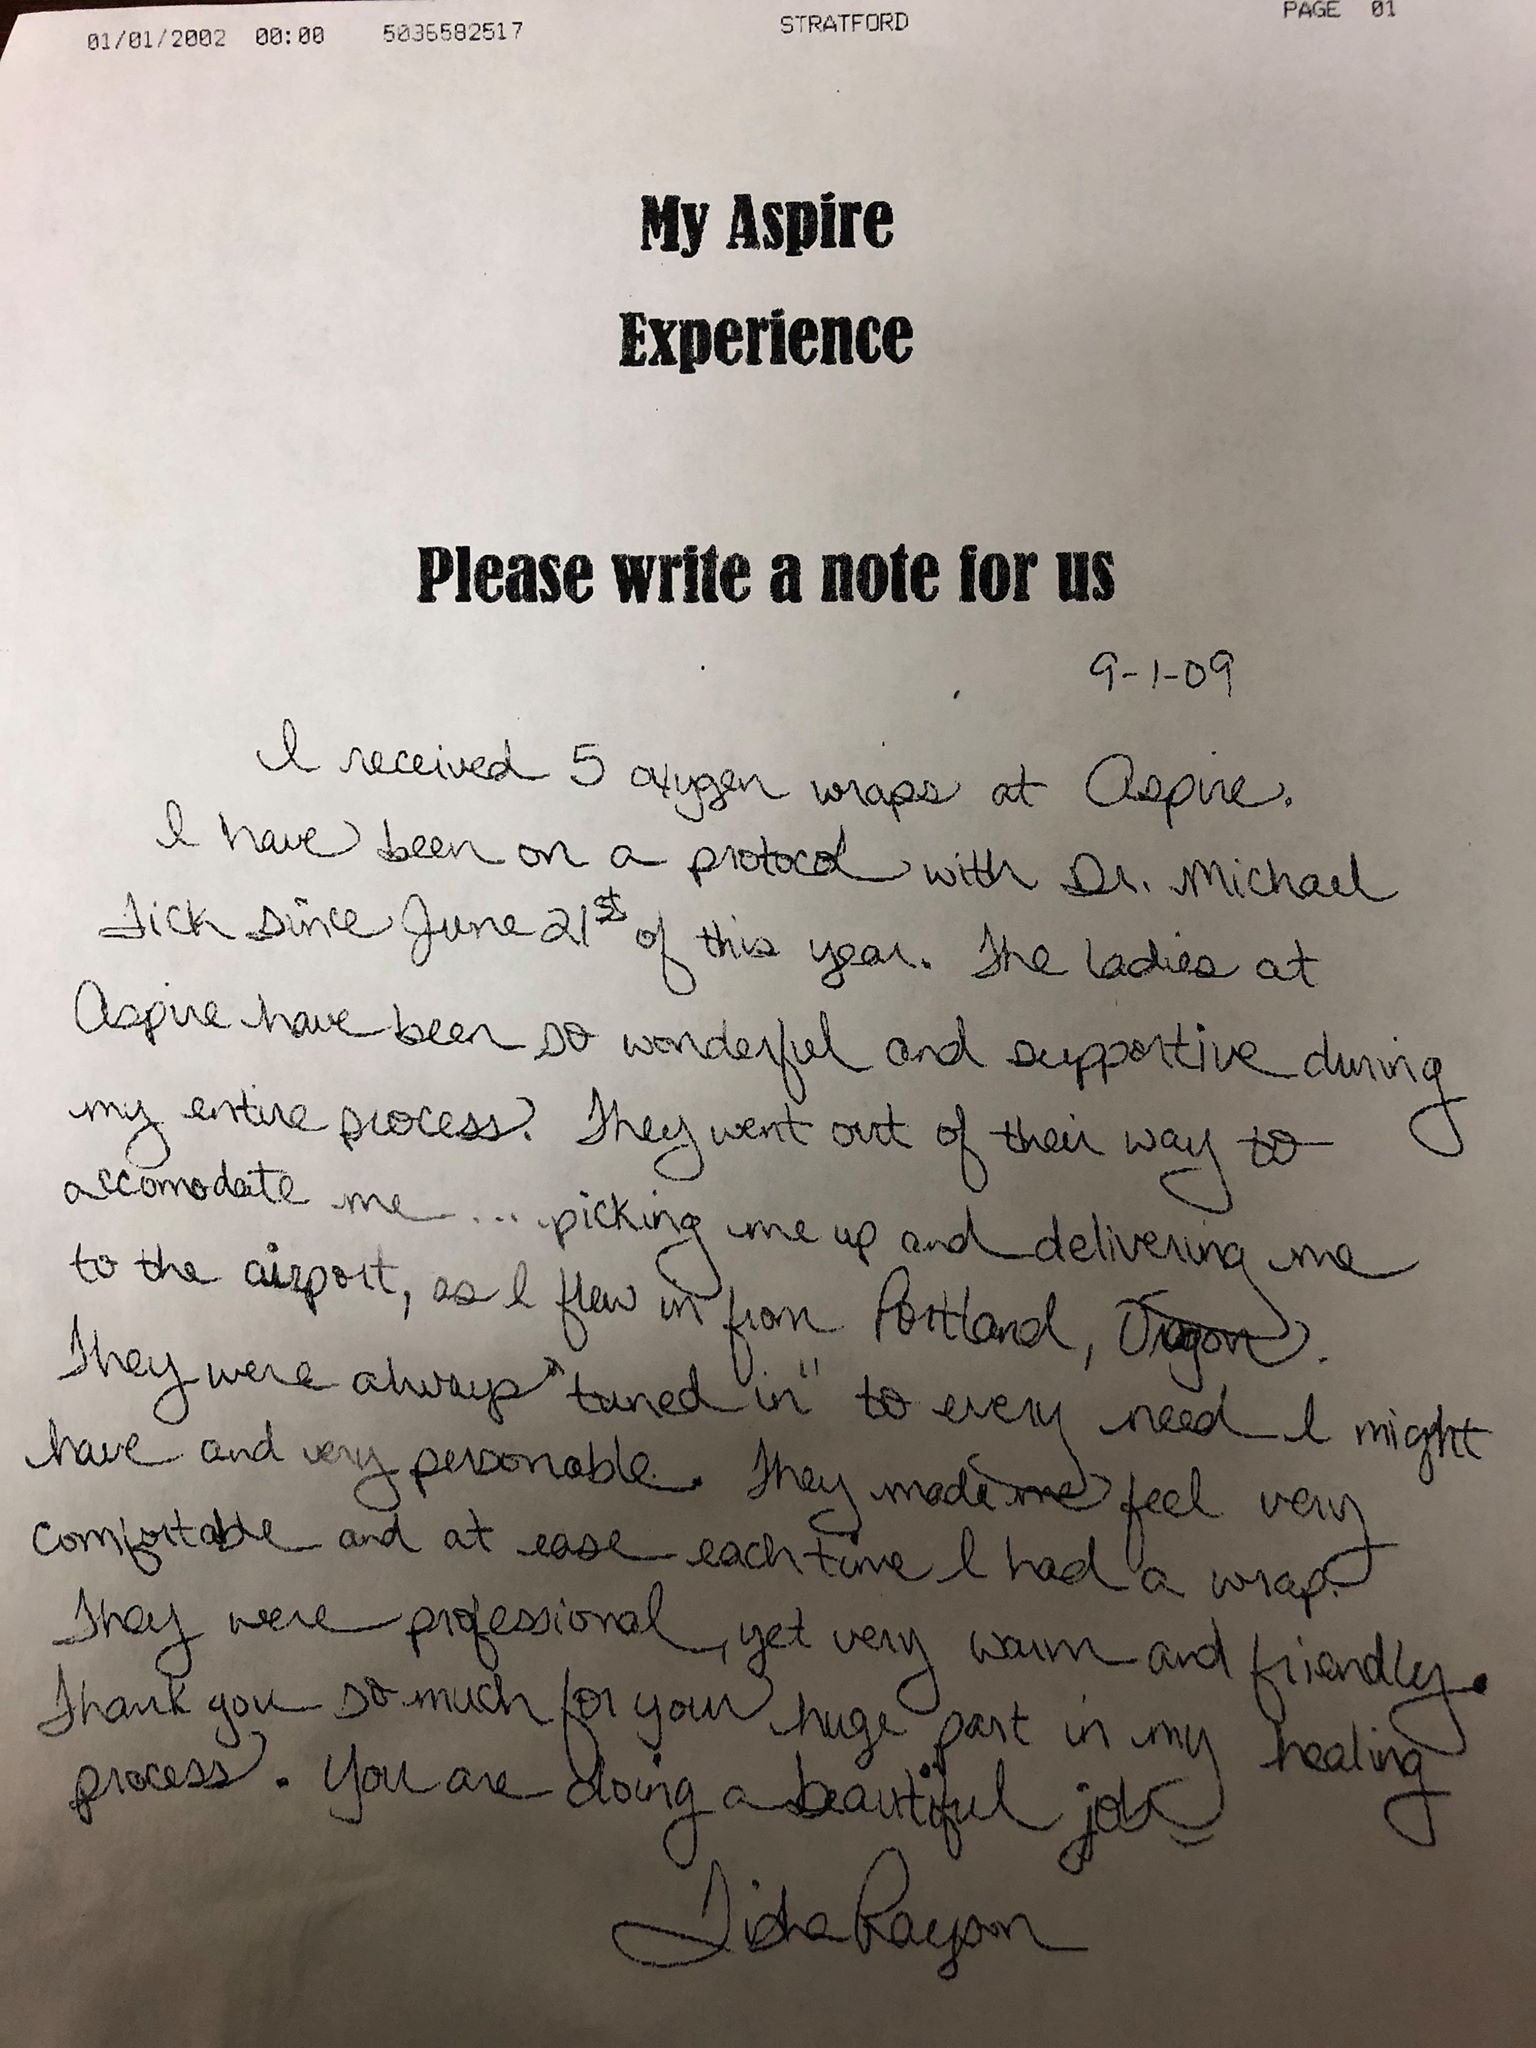 01/01/2002 00:00 5036582517 STRATFORD PAGE 01
My Aspire
Experience
Please write a note for us
9-1-09
I received 5 oxygen wraps at Aspire.
I have been on a protocol with Dr. Michael
Tick since June 21st of this year. The ladies at
Aspire have been so wonderful and supportive during
my entire process. They went out of their way to
accomodate me... picking me up and delivering me
to the airport, as I flew in from Portland, Oregon.
They were always "tuned in" to every need I might
have and very personable. They made me feel very
comfortable and at ease each time I had a wrap.
They were professional, yet very warm and friendly.
Thank you so much for your huge part in my healing
process. You are doing a beautiful job
Tisha Rayson